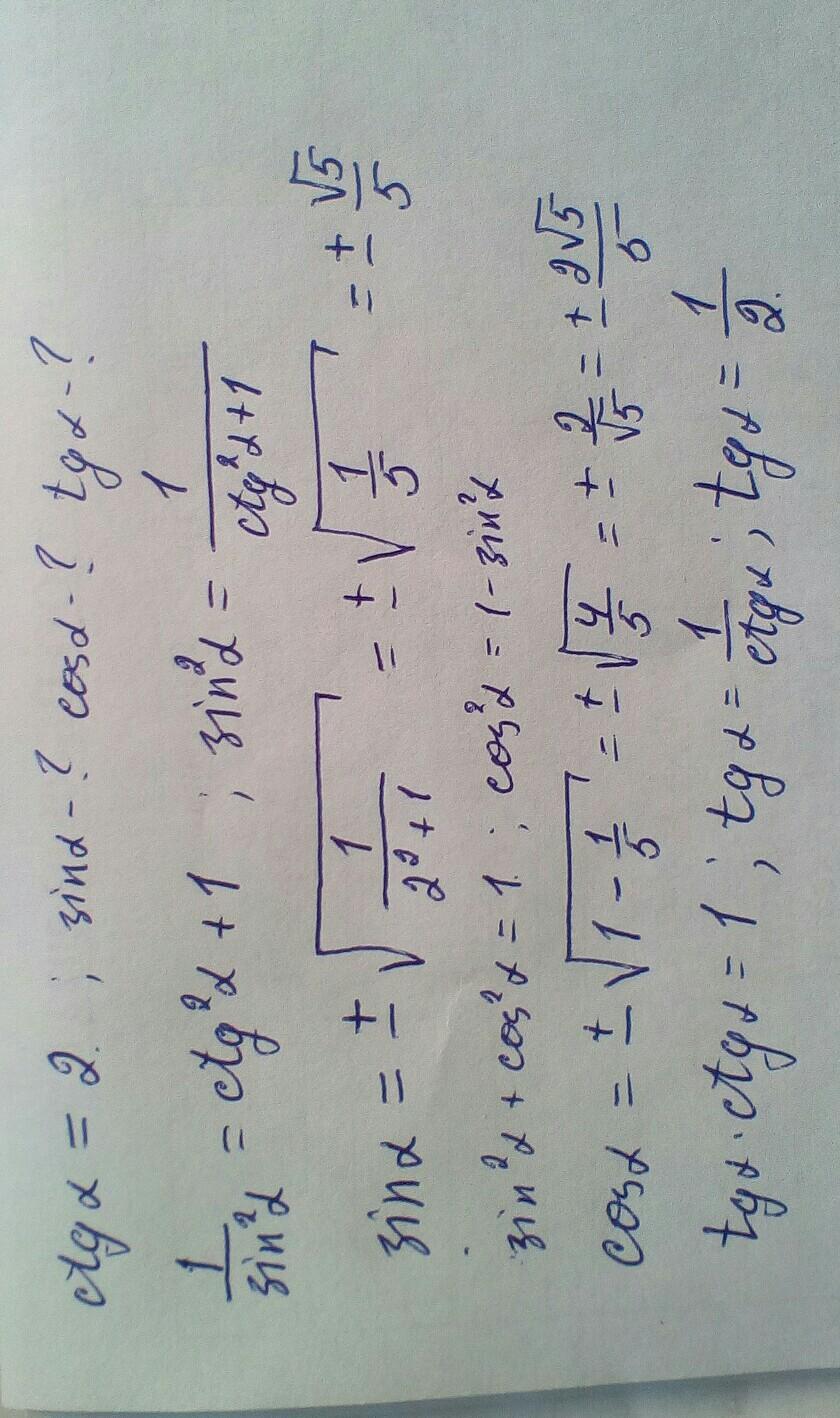 ctgα = 2 ; sinα - ? cosα - ? tgα - ?
1/sin²α = ctg²α + 1 ; sin²α = 1/(ctg²α+1)
sinα = ±√(1/(2²+1)) = ±√(1/5) = ±√5/5
sin²α + cos²α = 1 ; cos²α = 1 - sin²α
cosα = ±√(1 - 1/5) = ±√(4/5) = ±2/√5 = ±2√5/5
tgα · ctgα = 1 ; tgα = 1/ctgα ; tgα = 1/2.